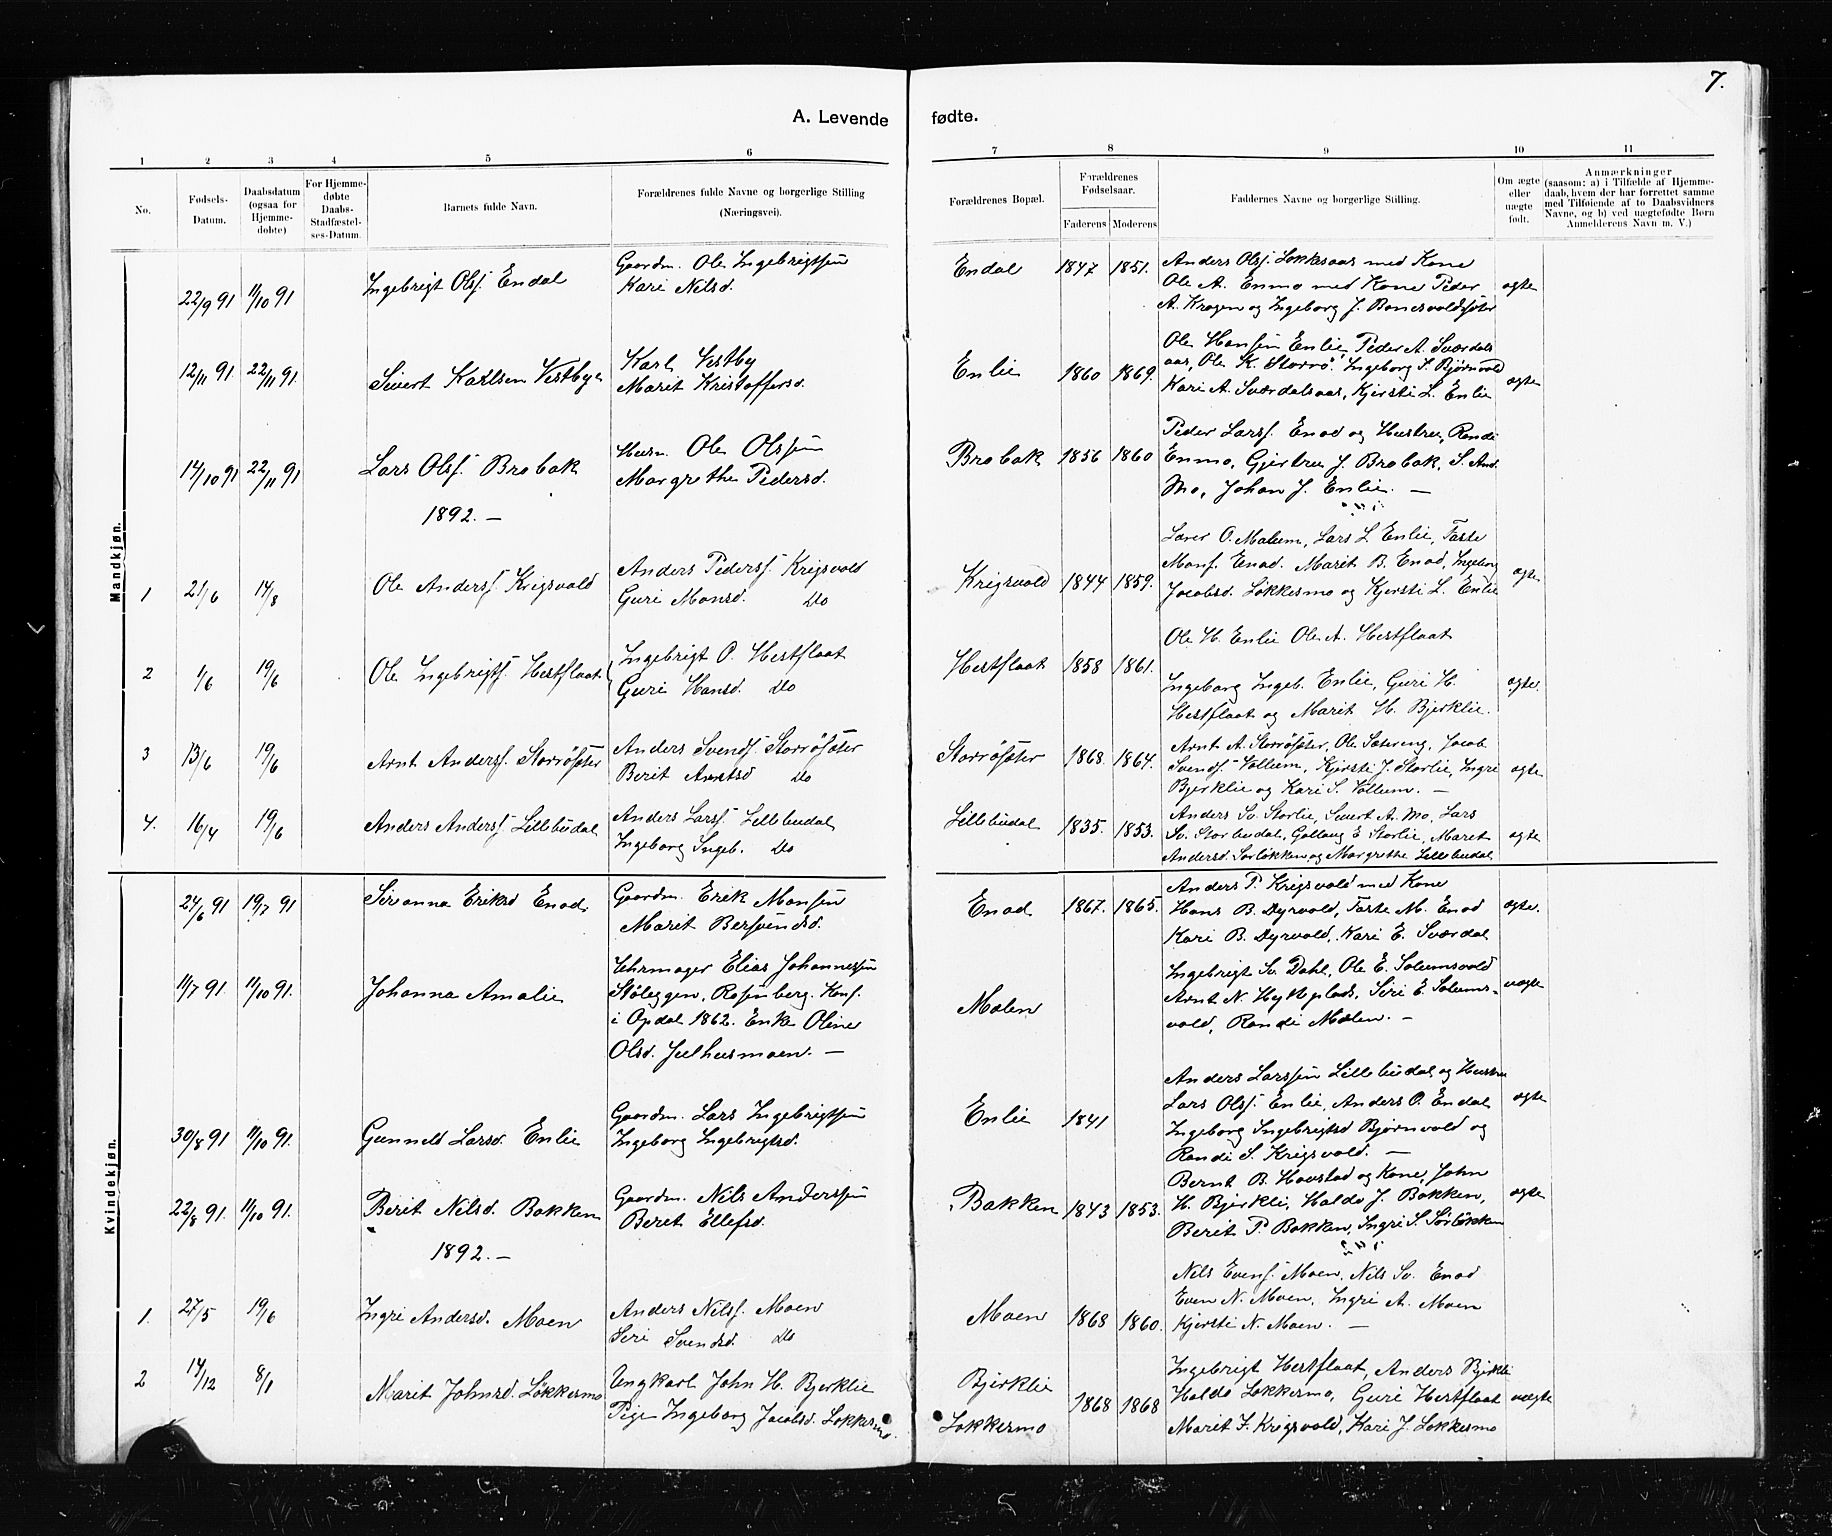 7.
A. Levende fødte.
1 2 3 4 5 6 7 8 9 10 11
No.
Fødsels-Datum.
Daabsdatum (ogsaa for Hjemme-døbte)
For Hjemme-døbte Daabs-Stadfæstel-ses-Datum.
Barnets fulde Navn.
Forældrenes fulde Navne og borgerlige Stilling
(Næringsvei).
Forældrenes Bopæl.
Forældrenes Fødselsaar.
Faderens Moderens
Faddernes Navne og borgerlige Stilling.
Om ægte eller uægte født.
Anmærkninger
(saasom: a) i Tilfælde af Hjemme-
daab, hvem der har forrettet samme
med Tilføiende af to Daabsvidners
Navne, og b) ved uægtefødte Børn
Anmelderens Navn m. V.)
Mandkjøn.
22/9 91 11/10 91 Ingebrigt Olsf. Endal
Gaardm. Ole Ingebrigtsen
Kari Nilsd.
Endal 1847 1851.
Anders Olsf. Løkkesaas med Kone
Ole A. Enmo med Kone Peder
A. Krogen og Ingeborg J. Bonesvoldsæter
ægte
12/11 91. 22/11 91. Sivert Karlsen Vestbye
Karl Vestby
Marit Kristoffersd.
Enlie 1860 1869.
Ole Hansen Enlie, Peder A. Sværdals
aas, Ole K. Storrø. Ingeborg S. Bjørnvold
Kari A. Sværdalsaas, Kjersti L. Enlie
ægte
14/10 91 22/11 91 Lars Olsf. Brobak
Husm. Ole Olssen
Margrethe Pedersd.
Brobak 1856 1860
Peder Larsf. Enod og Hustru, Randi
Enmo, Gjertru J. Brobak, S. And.
Mo, Johan J. Enlie. —
1892. —
1 21/6 14/8 Ole Andersf. Krigsvold
Anders Pedersf. Krigsvold
Guri Monsd. Do
Krigsvold 1844 1859.
Lærer O. Malum, Lars L. Enlie, Taste
Monf. Enod. Marit B. Enod, Ingeborg
Jacobsd. Løkkesmo og Kjersti L. Enlie
ægte
2 1/6 19/6 Ole Ingebrigtf. Hestflaat
Ingebrigt O. Hestflaat
Guri Hansd. Do
Hestflaat 1858 1861.
Ole H. Enlie Ole A. Hestflaat
Ingeborg Ingeb. Enlie, Guri H.
Hestflaat og Marit H. Bjerklie.
ægte.
3 13/6 19/6 Arnt Andersf. Storrøsæter
Anders Svendf. Storrøsæter
Berit Arntsd Do
Storrøsæter 1868. 1864.
Arnt A. Storrøsæter, Ole Sætereng, Jacob
Svendf. Vollum, Kjersti J. Storlie, Ingri
Bjerklie og Kari S. Vollum. —
ægte
4. 16/4 19/6 Anders Andersf. Lillebudal
Anders Larsf. Lillebudal
Ingeborg Ingeb. Do
Lillebudal 1835. 1853.
Anders Sv. Storlie, Sivert A. Mo, Lars
Sv. Storbudal, Gollaug E Storlie, Maret
Andersd. Sørløkken og Margrethe Lillebudal
ægte
Kvindekjøn.
24/6 91 19/7 91 Sivanna Eriksd Enod.
Gaardm. Erik Monsen
Marit Bersvendsd.
Enod 1867. 1865.
Anders P. Krigsvold med Kone
Hans B. Dyrvold, Taste M. Enod
Kari B. Dyrvold, Kari E. Sværdal
ægte.
11/7 91. 11/10 91. Johanna Amalie
Uhrmager Elias Johannessen
Støleggen, Rosenberg. Konf.
i Opdal 1862. Enke Oline
Olsd. Julhusmoen. —
Mælen
Ingebrigt Sv. Dahl, Ole E. Solumsvold
Arnt N. Hytteplads, Siri E. Solums-
vold, Randi Mælen. —
uægte
30/8 91 11/10 91. Gunnild Larsd. Enlie
Gaardm. Lars Ingebrigtsen
Ingeborg Ingebrigtsd.
Enlie 1841
Anders Larssen Lillebudal og Hustru
Lars Olsf. Enlie, Anders O. Endal
Ingeborg Ingebrigtsd Bjørnvold og
Randi S. Krigsvold. —
ægte
22/8 91. 11/10 91. Berit Nilsd. Bakken
Gaardm. Nils Anderssen
Berit Ellefsd.
Bakken 1843 1853.
Bernt B. Hovstad og Kone, John
H. Bjerklie, Haldo J. Bakken,
Berit P. Bakken, Ingri S. Sørløkken
ægte
1892. —
1. 27/5 19/6 Ingri Andersd. Moen
Anders Nilsf. Moen
Siri Svendsd. Do
Moen 1868 1860.
Nils Evenf. Moen, Nils Sv. Enod
Even N. Moen, Ingri A. Moen
Kjersti N. Moen. —
2 14/12 8/1 Marit Johnsd. Løkkesmo
Ungkarl John H. Bjerklie
Pige Ingeborg Jacobsd. Løkkesmo.
Bjerklie
Løkkesmo
1868 1868
Ingebrigt Hestflaat, Anders Bjerkli
Haldo Løkkesmo, Guri Hestflaat
Marit J. Krigsvold, Kari J. Løkkesmo
uægte